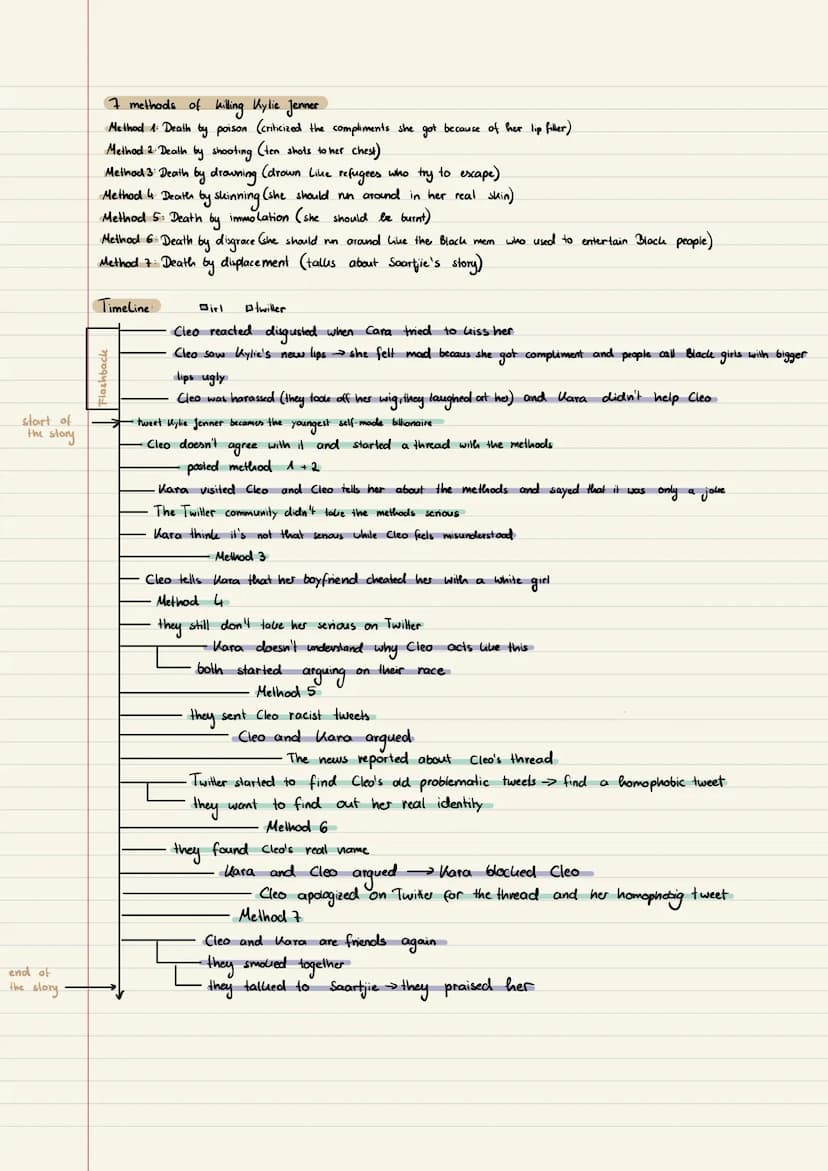 7 methods of killing Kylie Jenner
Method 1: Death by poison (criticized the compliments she got because of her lip filler)
Method 2: Death by shooting (ten shots to her chest)
Method 3: Death by drowning (drown like refugees who try to escape)
Method 4: Death by skinning (she should run around in her real skin)
Method 5: Death by immolation (she should be burnt)
Method 6: Death by disgrace (she should run around like the Black men who used to entertain Black people)
Method 7: Death by displacement (talks about Saartjie's story)
Timeline irl twitter
Flashback
Cleo reacted disgusted when Cara tried to kiss her
Cleo saw Kylie's new lips → she felt mad becaus she got compliment and people call Black girls with bigger
lips ugly
Cleo was harassed (they took off her wig, they laughed at he) and Kara didn't help Cleo
start of
the story
tweet Kylie Jenner becomes the youngest self-made billionaire
Cleo doesn't agree with it and started a thread with the methods
posted method 1 + 2
Kara visited Cleo and Cleo tells her about the methods and sayed that it was only a joke
The Twitter community didn't take the methods serious
Kara think it's not that serious while Cleo feels misunderstood
Method 3
Cleo tells Kara that her boyfriend cheated her with a white girl
Method 4
they still don't take her serious on Twitter
Kara doesn't understand why Cleo acts like this
both started arguing on their race
Method 5
they sent Cleo racist tweets
Cleo and Kara argued
The news reported about Cleo's thread
Twitter started to find Cleo's old problematic tweets → find a homophobic tweet
they want to find out her real identity
Method 6
they found Cleo's real name
Kara and Cleo argued → Kara blocked Cleo
Cleo apologized on Twitter for the thread and her homophobig tweet
Method 7
Cleo and Kara are friends again
they smoked together
end of
the story
they talked to Saartjie → they praised her